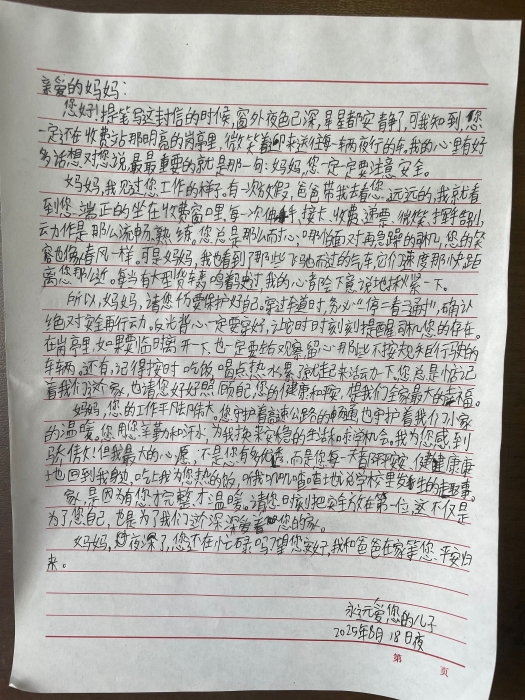 亲爱的妈妈：
您好！提笔写这封信的时候，窗外夜色已深，星星都安静了，可我知道，您
一定还在收费站那明亮的岗亭里，微笑着迎来送往每一辆夜行的车。我的心里有好
多话想对您说，最最重要的就是那一句：妈妈，您一定一定要注意安全。
妈妈，我见过您工作的样子。有一次放假，爸爸带我去看您。远远的，我就看
到您端正的坐在收费窗里，每一次伸手、接卡、收费、递票、微笑、挥手告别，
动作是那么流畅、熟练。您总是那么耐心，哪怕面对再急躁的司机，您的笑
容也像春风一样。可是妈妈，我也看到了那些飞驰而过的汽车，它们速度那么快，距
离您那么近。每当有大型货车轰鸣着驶过，我的心都会下意识地揪紧一下。
所以，妈妈，请您一定要保护好自己。穿过车道时，务必"一停二看三通过"，确认
绝对安全再行动。反光背心一定要穿好，让它时时刻刻提醒司机您的存在。
在岗亭里，如果要临时离开一下，也一定要左右观察，留心那些不按规矩行驶的
车辆。还有，记得按时吃饭，喝点热水，累了就起来活动一下。您总是惦记
着我们这个家，也请您好好照顾自己，您的健康和平安，是我们全家最大的幸福。
妈妈，您的工作平凡却伟大。您守护着高速公路的畅通，也守护着我们小家
的温暖。您用辛勤和汗水，为我换来安稳的生活和求学机会。我为您感到
骄傲！但我最大的心愿，不是您有多优秀，而是您每一天都平平安安、健健康康
地回到我身边，吃上我为您热的饭，听我叽叽喳喳地说学校里发生的趣事。
家，是因为有您才完整才温暖。请您时刻把安全放在第一位，这不仅是
为了您自己，也是为了我们这个深深爱着您的家。
妈妈，夜深了，您还在忙碌吗？愿您安好，我和爸爸在家等您，平安归
来。
永远爱您的儿子
2025年8月18日夜
第 页